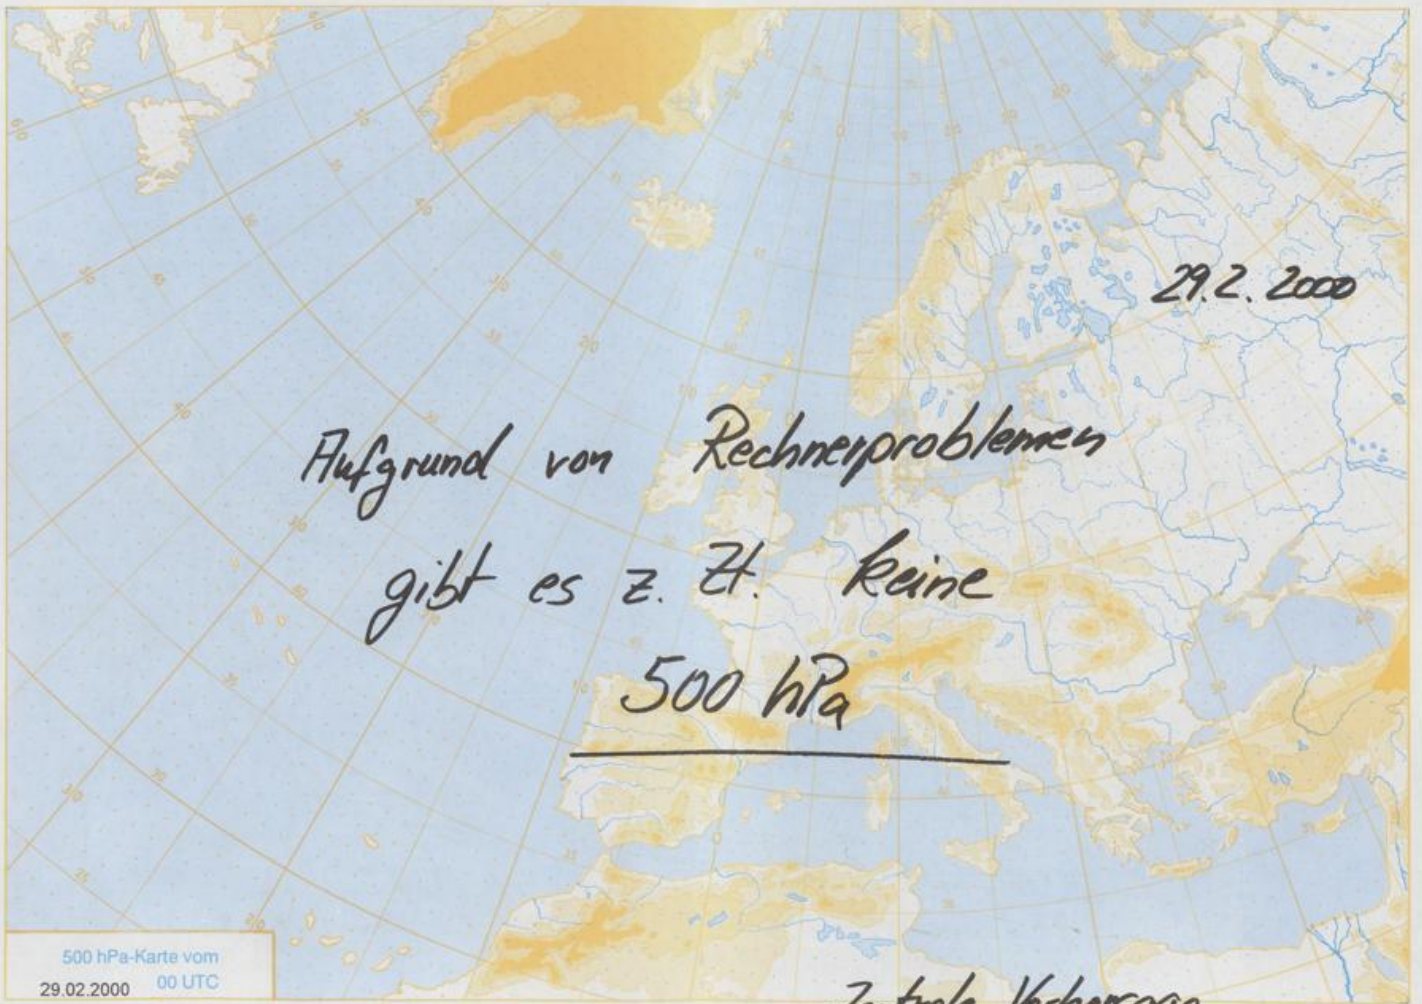 29.2. 2000
Aufgrund von Rechnerproblemen
gibt es z. Zt. keine
500 hPa
500 hPa-Karte vom
29.02.2000 00 UTC